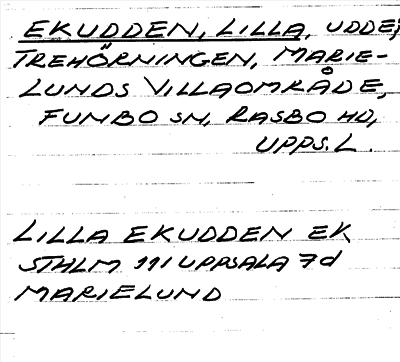 EKUDDEN, LILLA, UDDE,
TREHÖRNINGEN, MARIE-
LUNDS VILLAOMRÅDE,
FUNBO SN, RASBO HD,
UPPS.L.
LILLA EKUDDEN EK
STHLM 111 UPPSALA 7d
MARIELUND